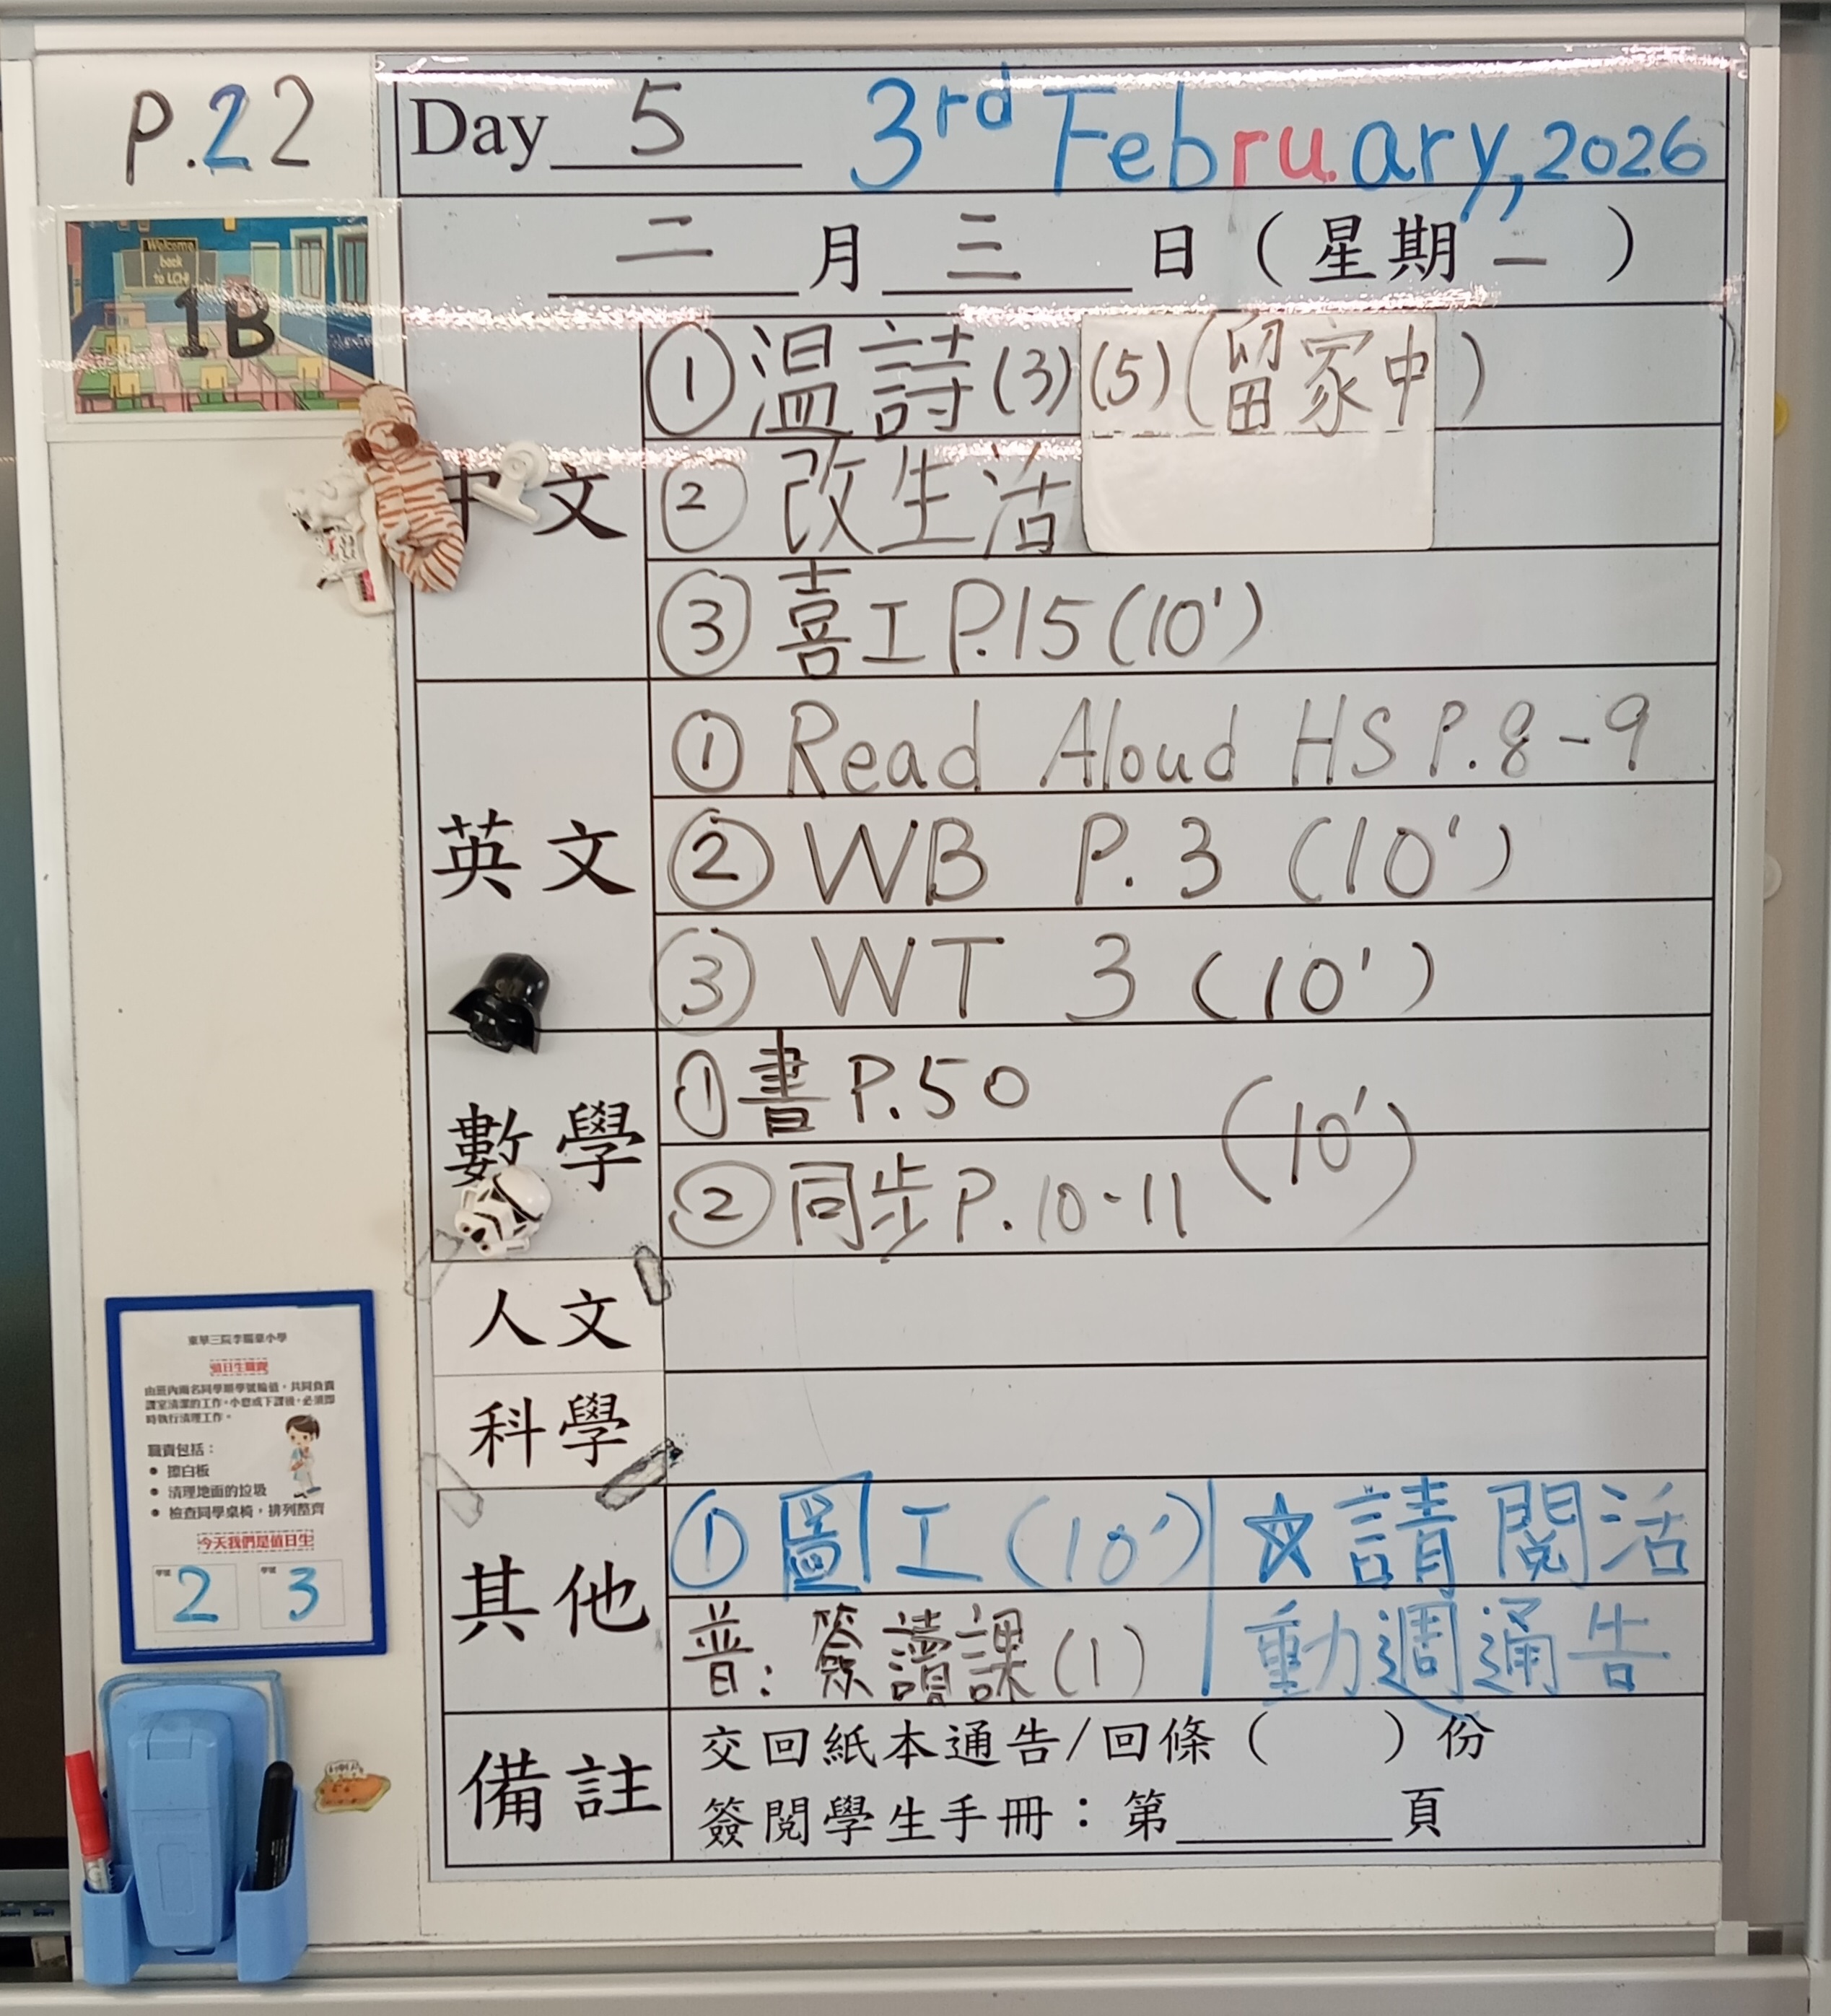 P.22
Day 5 3rd February, 2026
二 月 三 日 ( 星期 一 )
Welcome
back
to LCH!
1B
中文
① 溫詩(3)(5)(留家中)
② 改生活
③ 喜工P.15(10')
英文
① Read Aloud HS P.8-9
② WB P.3 (10')
③ WT 3 (10')
數學
① 書P.50
② 同步P.10-11 (10')
人文
科學
其他
① 圖工(10') ☆請閱活
動週通告
普:簽讀課(1)
備註
交回紙本通告/回條( )份
簽閱學生手冊:第 頁
值日生職責
由班內兩名同學順學號輪值,共同負責
課室清潔的工作,小息或下課後,必須即
時執行清理工作。
職責包括:
• 擦白板
• 清理地面的垃圾
• 檢查同學桌椅,排列整齊
今天我們是值日生
學號 2 學號 3